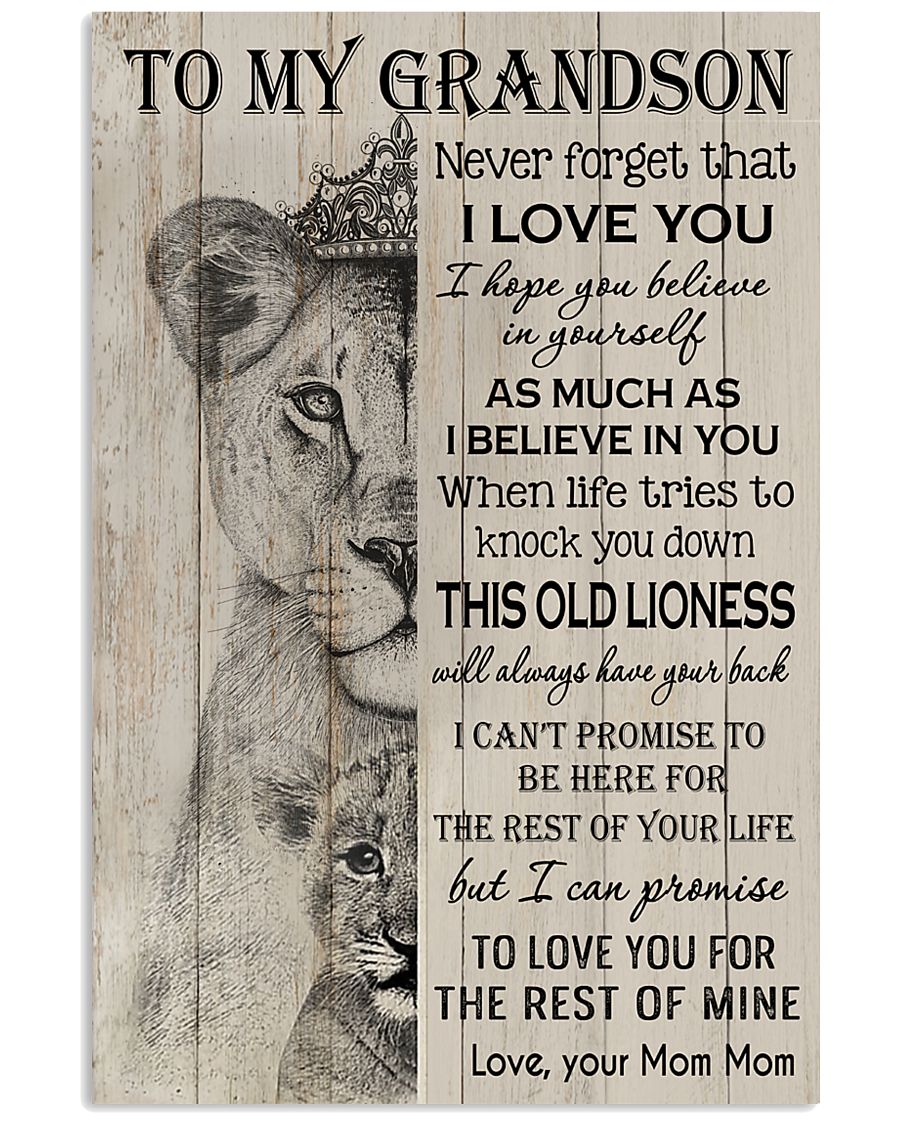 TO MY GRANDSON
Never forget that
I LOVE YOU
I hope you believe
in yourself
AS MUCH AS
I BELIEVE IN YOU
When life tries to
knock you down
THIS OLD LIONESS
will always have your back
I CAN'T PROMISE TO
BE HERE FOR
THE REST OF YOUR LIFE
but I can promise
TO LOVE YOU FOR
THE REST OF MINE
Love, your Mom Mom